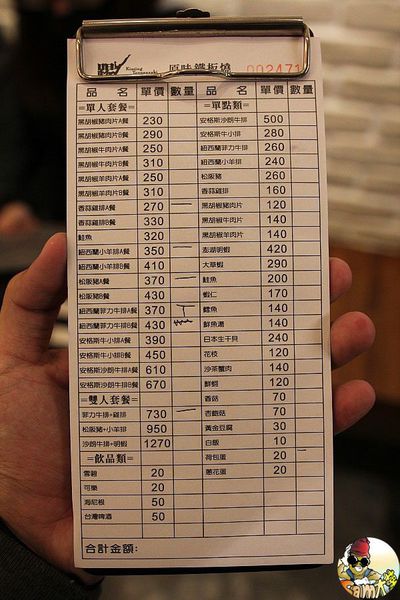 原味鐵板燒 002471
品名 單價 數量
=單人套餐=
黑胡椒豬肉片A餐 230
黑胡椒豬肉片B餐 290
黑胡椒牛肉片A餐 250
黑胡椒牛肉片B餐 310
黑胡椒羊肉片A餐 250
黑胡椒羊肉片B餐 310
香蒜雞排A餐 270
香蒜雞排B餐 330
鮭魚 320
紐西蘭小羊排A餐 350
紐西蘭小羊排B餐 410
松阪豬A餐 370
松阪豬B餐 430
紐西蘭菲力牛排A餐 370
紐西蘭菲力牛排B餐 430
安格斯牛小排A餐 390
安格斯牛小排B餐 450
安格斯沙朗牛排A餐 610
安格斯沙朗牛排B餐 670
=雙人套餐=
菲力牛排+雞排 730
松阪豬+小羊排 950
沙朗牛排+明蝦 1270
=飲品類=
雪碧 20
可樂 20
海尼根 50
台灣啤酒 50
品名 單價 數量
=單點類=
安格斯沙朗牛排 500
安格斯牛小排 280
紐西蘭菲力牛排 260
紐西蘭小羊排 240
松阪豬 260
香蒜雞排 160
黑胡椒豬肉片 120
黑胡椒牛肉片 140
黑胡椒羊肉片 140
澎湖明蝦 420
大草蝦 290
鮭魚 200
蝦仁 170
鱈魚 140
鮮魚湯 140
日本生干貝 240
花枝 120
沙茶蟹肉 140
鮮蚵 120
香菇 70
杏鮑菇 70
黃金豆腐 30
白飯 10
荷包蛋 20
蔥花蛋 20
合計金額: